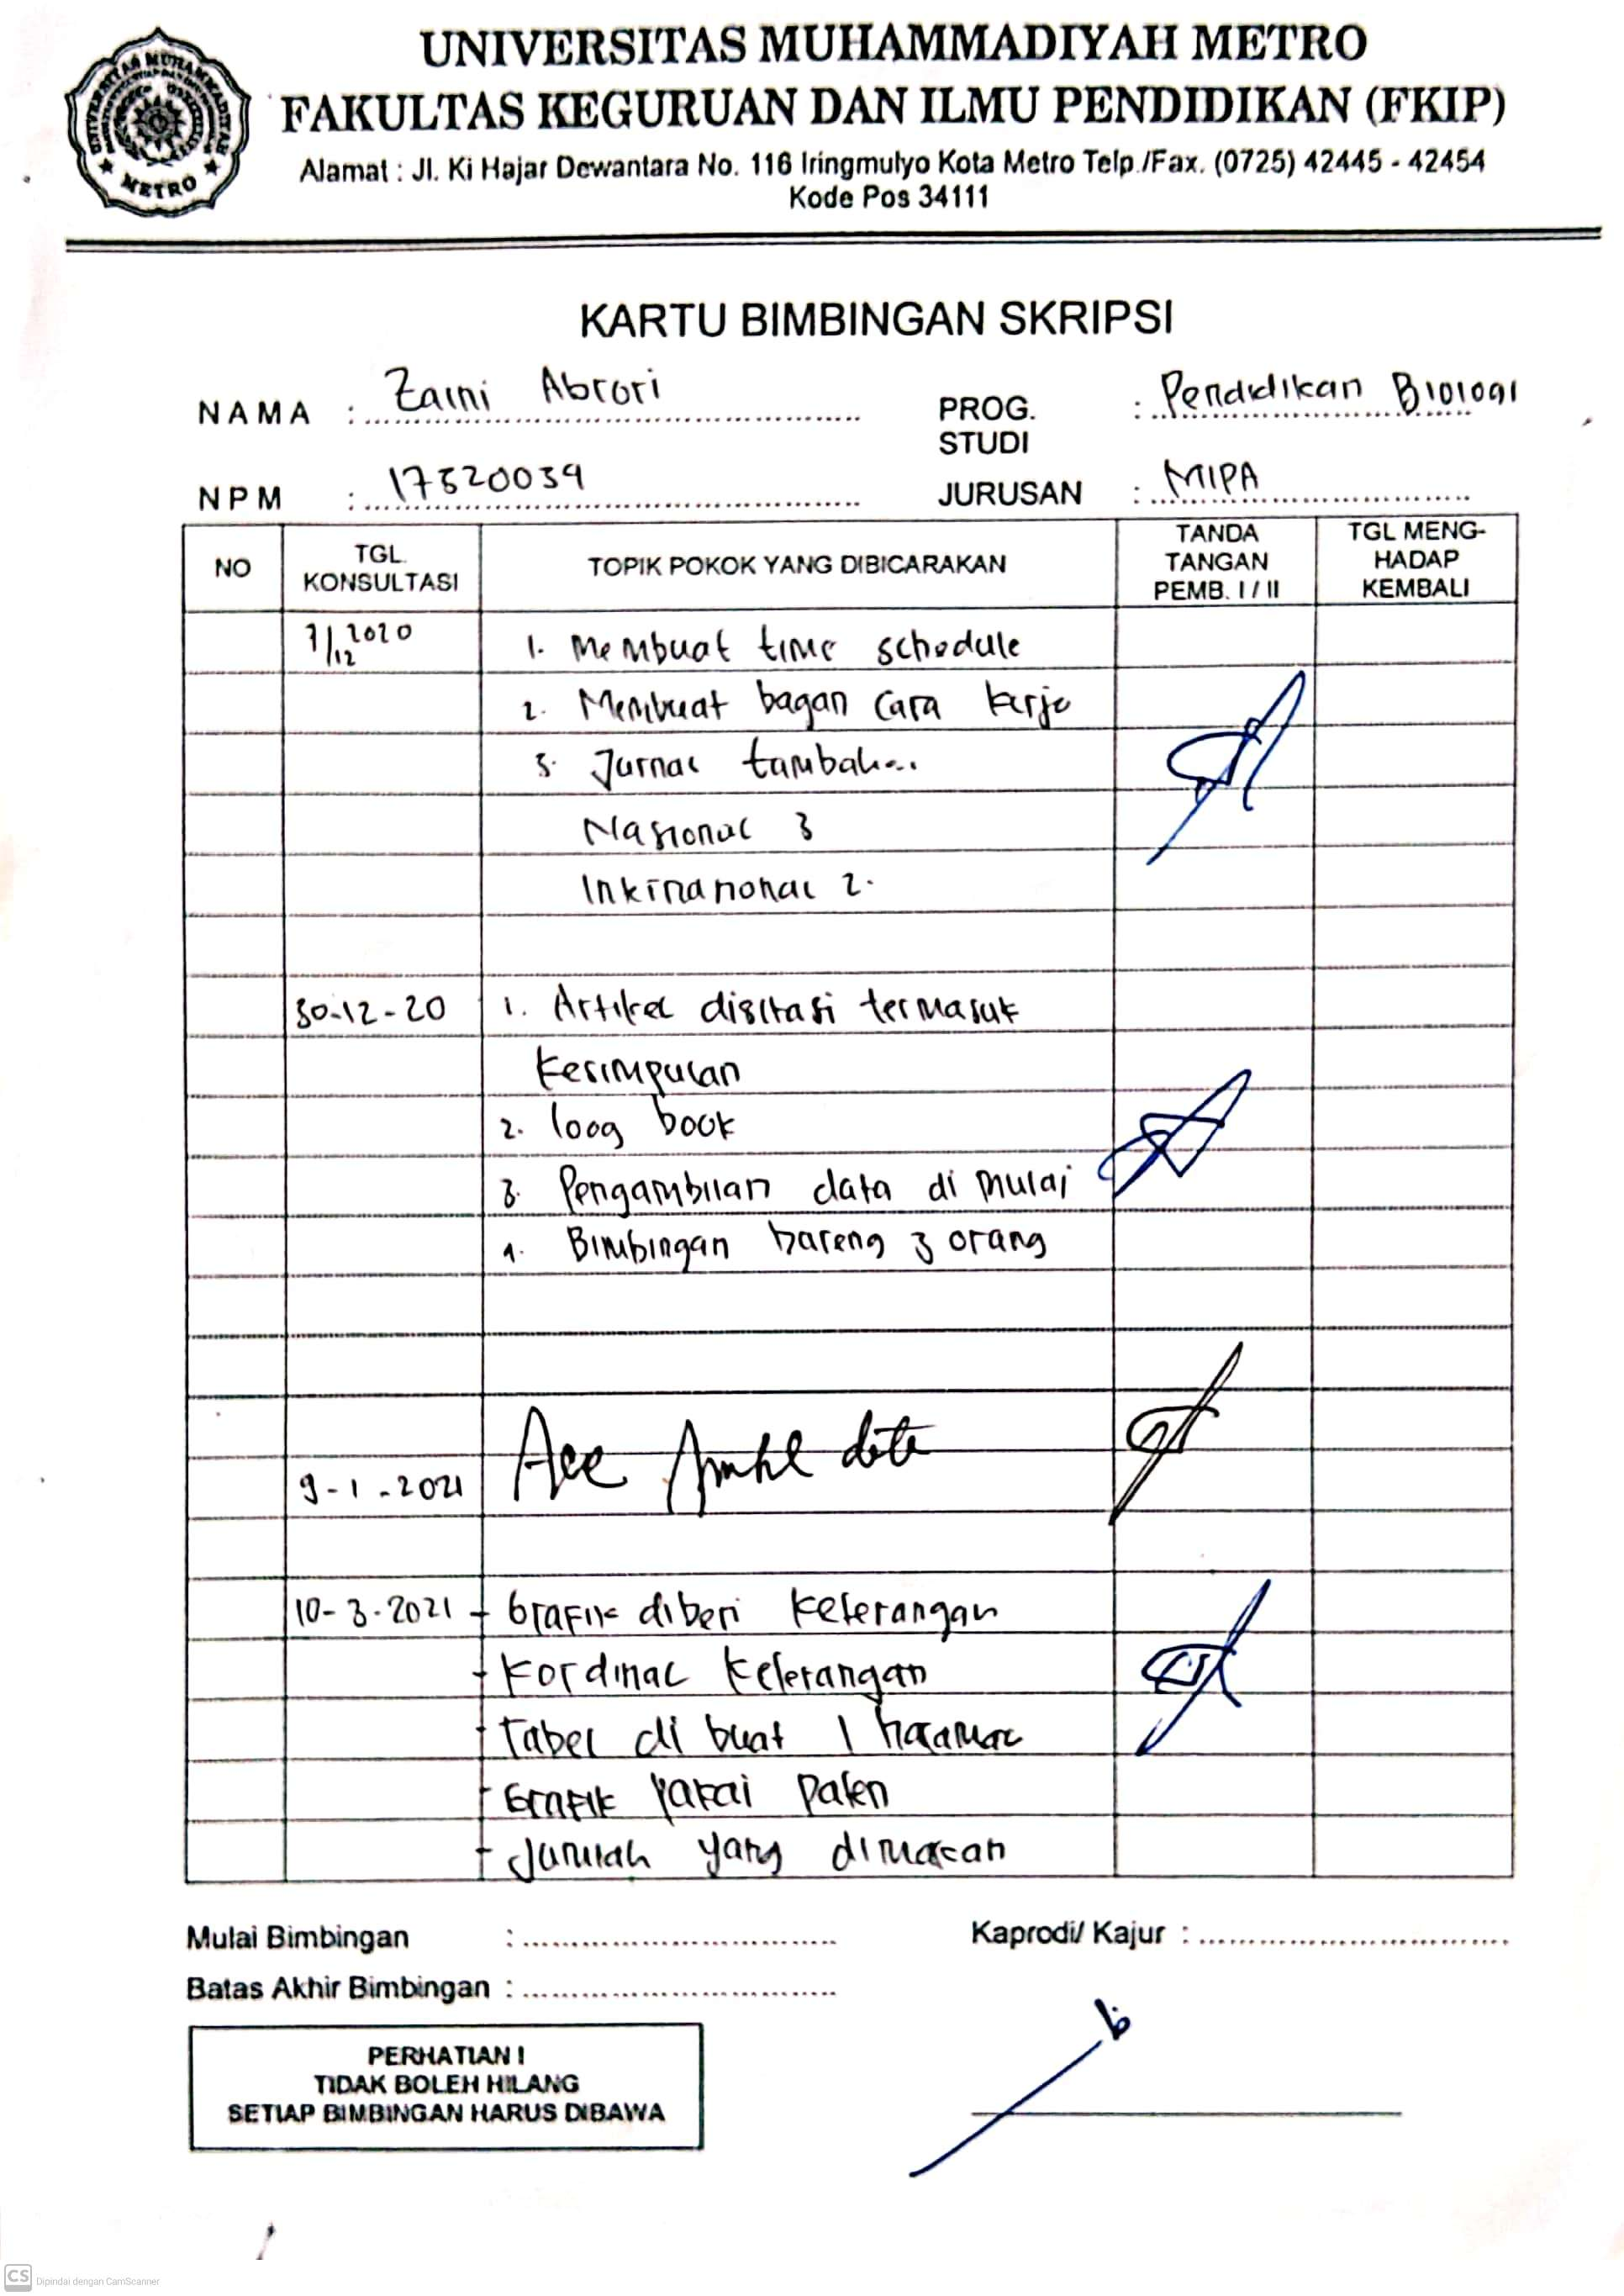 UNIVERSITAS MUHAMMADIYAH METRO
FAKULTAS KEGURUAN DAN ILMU PENDIDIKAN (FKIP)
Alamat : Jl. Ki Hajar Dewantara No. 116 Iringmulyo Kota Metro Telp./Fax. (0725) 42445 - 42454
Kode Pos 34111
UNIVERSITAS MUHAMMADIYAH
METRO
KARTU BIMBINGAN SKRIPSI
NAMA : Zaini Abrori
PROG. STUDI : Pendidikan Biologi
NPM : 17320039
JURUSAN : MIPA
NO
TGL. KONSULTASI
TOPIK POKOK YANG DIBICARAKAN
TANDA TANGAN PEMB. I / II
TGL MENG-HADAP KEMBALI
7/12 2020 1. Membuat time schedule
2. Membuat bagan cara kerja
3. Jurnal tambahan
Nasional 3
Internasional 2.
30-12-20 1. Artikel disitasi termasuk
Kesimpulan
2. loog book
3. Pengambilan data di mulai
4. Bimbingan bareng 3 orang
9-1-2021 Acc Ambil data
10-3-2021 - Grafik diberi keterangan
- Kordinal keterangan
- Tabel di buat 1 halaman
- Grafik pakai
- Jumlah yang dimacan
Mulai Bimbingan :
Kaprodi/ Kajur :
Batas Akhir Bimbingan :
PERHATIAN !
TIDAK BOLEH HILANG
SETIAP BIMBINGAN HARUS DIBAWA
CS Dipindai dengan CamScanner